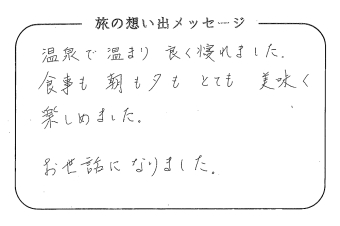 旅の想い出メッセージ
温泉で温まり 良く寝れました.
食事も 朝も夕も とても 美味く
楽しめました.
お世話に なりました.